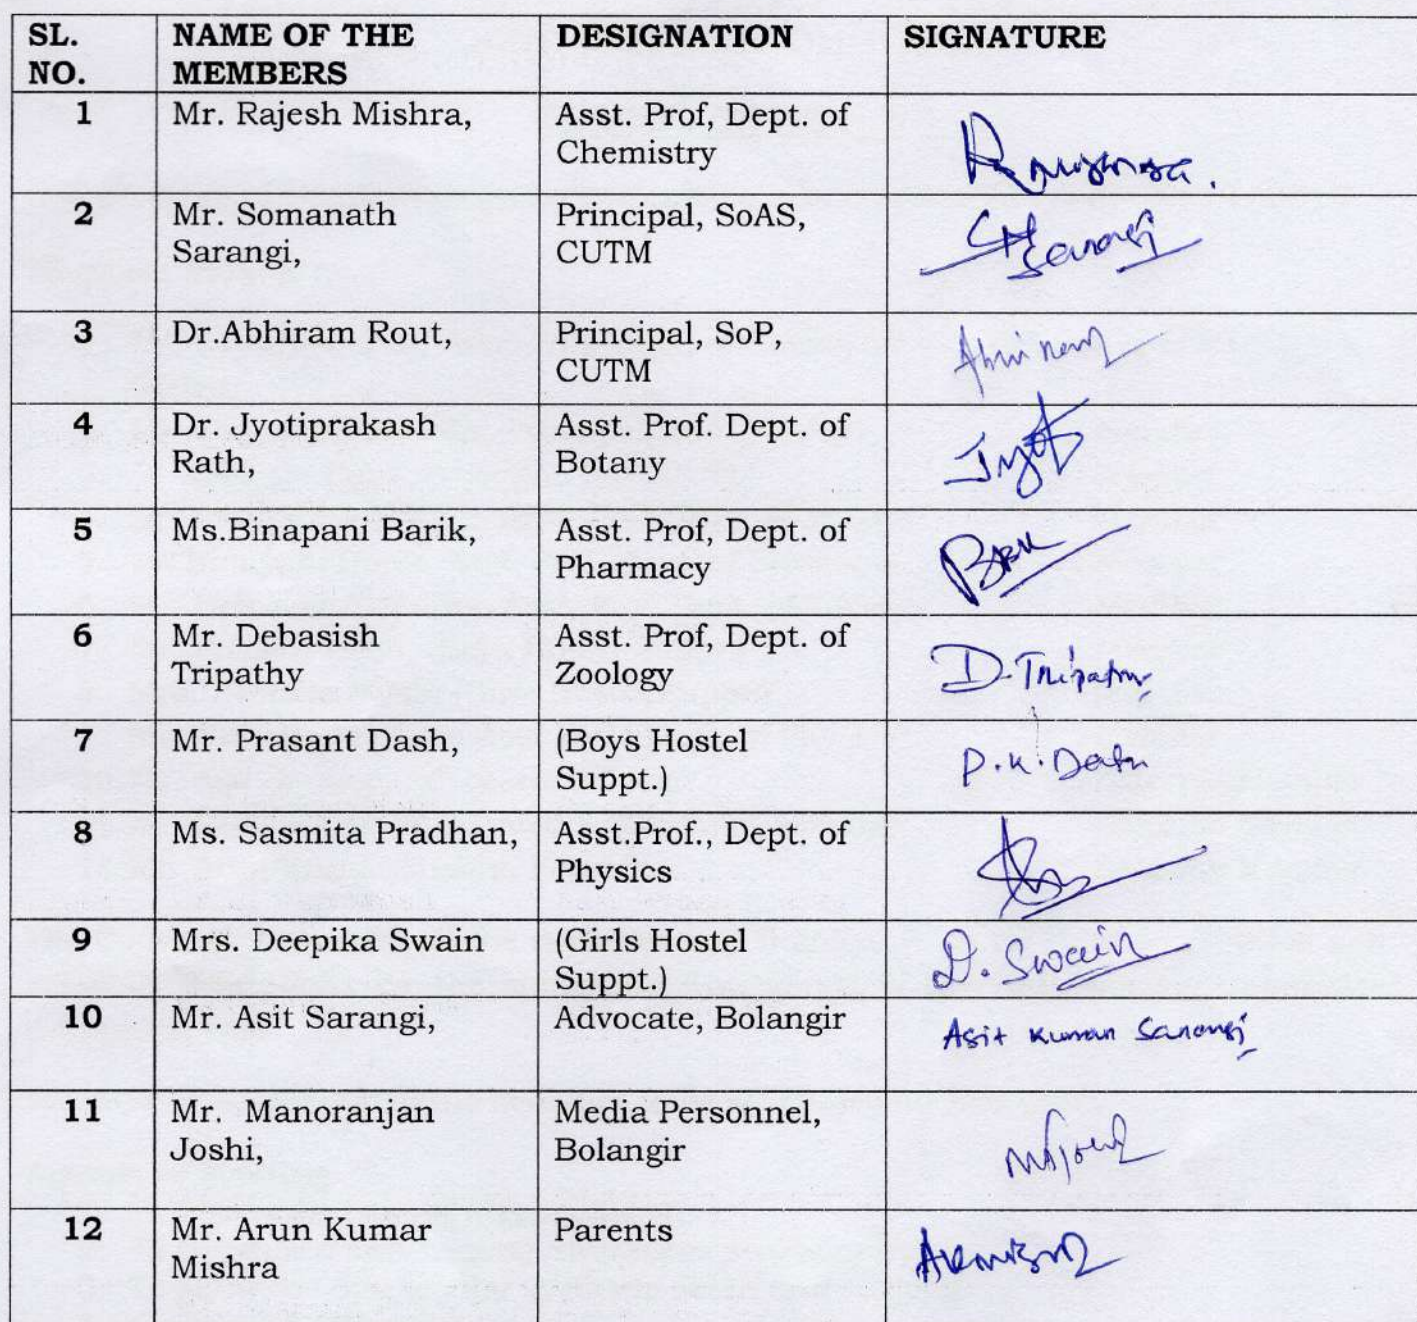 SL. NO.	NAME OF THE MEMBERS	DESIGNATION	SIGNATURE
1	Mr. Rajesh Mishra,	Asst. Prof, Dept. of Chemistry
2	Mr. Somanath Sarangi,	Principal, SoAS, CUTM	Sarangi
3	Dr.Abhiram Rout,	Principal, SoP, CUTM
4	Dr. Jyotiprakash Rath,	Asst. Prof. Dept. of Botany
5	Ms.Binapani Barik,	Asst. Prof, Dept. of Pharmacy
6	Mr. Debasish Tripathy	Asst. Prof, Dept. of Zoology	D. Tripathy
7	Mr. Prasant Dash,	(Boys Hostel Suppt.)	P.K. Dash
8	Ms. Sasmita Pradhan,	Asst.Prof., Dept. of Physics
9	Mrs. Deepika Swain	(Girls Hostel Suppt.)	D. Swain
10	Mr. Asit Sarangi,	Advocate, Bolangir	Asit Kumar Sarangi
11	Mr. Manoranjan Joshi,	Media Personnel, Bolangir
12	Mr. Arun Kumar Mishra	Parents